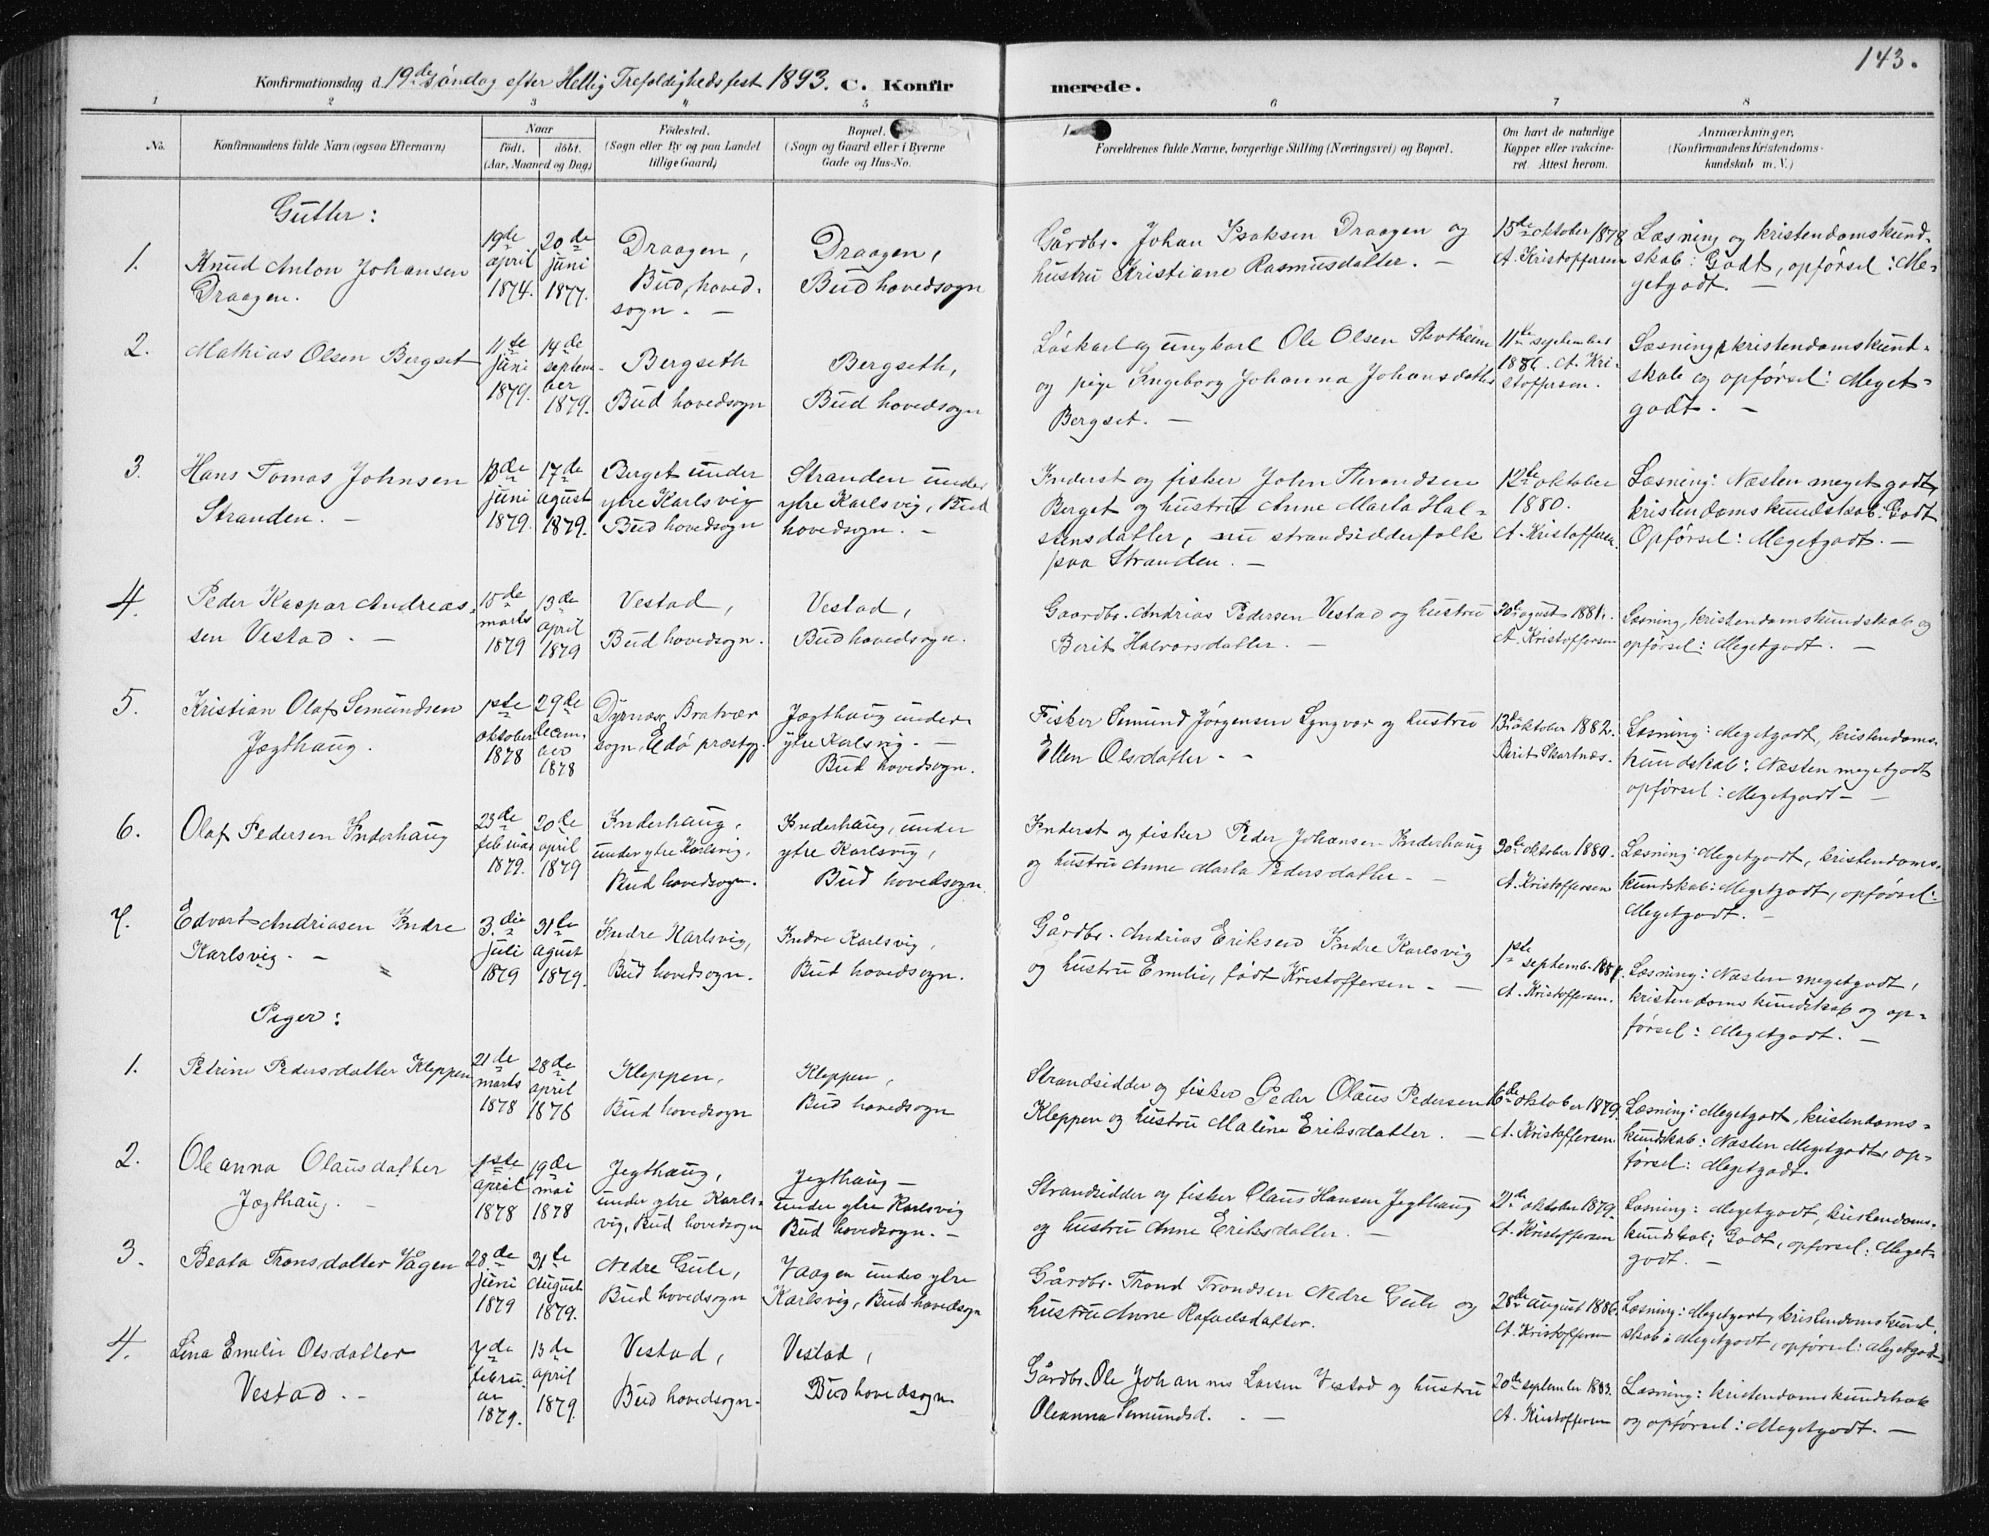 143.
Konfirmationsdag d. 19de søndag efter Hellig Trefoldighedsfest 1893. C. Konfirmerede.
1 2 3 4 5 6 7 8
No.
Konfirmandens fulde Navn (ogsaa Efternavn)
Naar
født. døbt.
(Aar, Maaned og Dag)
Fødested.
(Sogn eller By og paa Landet
tillige Gaard)
Bopæl.
(Sogn og Gaard eller i Byerne
Gade og Hus-No.
Forældrenes fulde Navne, borgerlige Stilling (Næringsvei) og Bopæl.
Om havt de naturlige
Kopper eller vakcine-
ret. Attest herom.
Anmærkninger.
(Konfirmandens Kristendoms-
kundskab m. V.)
Gutter:
1.
Knud Anton Johansen
Draagen.
19de
april
1874.
20de
juni
1877.
Draagen,
Bud, hoved-
sogn. —
Draagen,
Bud hovedsogn
Gårdbr. Johan Isaksen Draagen og
hustru Kristiane Rasmusdatter. —
15de oktober 1878
A. Kristoffersen
Læsning og kristendomskund-
skab: Godt, opførsel: Me-
getgodt. —
2.
Mathias Olsen Bergset
11te
juni
1879.
14de
septem-
ber
1879.
Bergseth
Bud hovedsogn
Bergseth,
Bud hovedsogn
Løskarl og ungkarl Ole Olsen
og pige Ingeborg Johanna Johansdatter
Bergset. —
11te september
1886. A. Kri-
stoffersen.
Læsning, kristendomskund-
skab og opførsel: Meget-
godt. —
3.
Hans Tomas Johnsen
Stranden. —
juni
1879.
17de
agust
1879.
Berget under
ytre Karlsvig
Bud hovedsogn
Stranden under
ytre Karlsvig, Bud
hovedsogn. —
Inderst og fisker John
Berget og hustru Anne Marta Hal-
stensdatter, nu strandsidderfolk
paa Stranden. —
12te oktober
1880.
A. Kristoffersen.
Læsning: Næsten meget godt,
kristendomskundskab: Godt
Opførsel: Megetgodt. —
4.
Peder Kaspar Andreas-
sen Vestad. —
15de
marts
1879
13de
april
1879
Vestad,
Bud hovedsogn.
Vestad,
Bud hovedsogn.
Gaardbr. Andrias Pedersen Vestad og hustru
Berit Halvorsdatter. —
august 1881.
A. Kristoffersen
Læsning, kristendomskundskab og
opførsel: Megetgodt. —
5.
Kristian Olaf Semundsen
Jægthaug.
1ste
oktober
1878
29de
decem-
ber
1878
Dyrnæs, Bratvær
sogn, Edø præstgj.
Jægthaug under
ytre Karlsvig. —
Bud hovedsogn.
Fisker Semund Jørgensen Lyngvær og hustru
Ellen Olsdatter. —
13de oktober 1882.
Berit Skartnæs.
Læsning: Megetgodt, kristendoms-
kundskab: Næsten megetgodt
opførsel: Megetgodt —
6.
Olaf Pedersen Inderhaug
23de
februar
1879.
20de
april
1879
Inderhaug,
under ytre Karlsvig,
Bud hovedsogn.
Inderhaug, under
ytre Karlsvig,
Bud hovedsogn.
Inderst og fisker Peder Johansen Inderhaug
og hustru Anne Marta Pedersdatter. —
oktober 1889.
A. Kristoffersen
Læsning: Megetgodt, kristendoms-
kundskab: Megetgodt, opførsel:
Megetgodt. —
7.
Edvart Andriasen Indre
Karlsvig. —
3die
juli
1879
31te
agust
1879.
Indre Karlsvig,
Bud hovedsogn.
Indre Karlsvig,
Bud hovedsogn.
Gårdbr. Andrias Eriksen Indre Karlsvig
og hustru Emilie, født Kristoffersen. —
1ste
september
A. Kristoffersen.
Læsning: Næsten megetgodt,
kristendomskundskab og op-
førsel: Megetgodt. —
Piger:
1.
Petrine Pedersdatter Kleppen
21de
marts
1878
28de
april
1878
Kleppen,
Bud hovedsogn
Kleppen,
Bud hovedsogn
Strandsidder og fisker Peder Olaus Pedersen
Kleppen og hustru Maline Eriksdatter. —
16de oktober 1879.
A. Kristoffersen
Læsning: Megetgodt, kristendoms-
kundskab: Næsten Megetgodt, op-
førsel: Megetgodt.
2.
Oleanna Olausdatter
Jægthaug. —
1ste
april
1878
19de
mai
1878
Jegthaug,
under ytre Karls-
vig, Bud hovedsogn
Jegthaug —
under ytre Karlsvig
Bud hovedsogn. —
Strandsidder og fisker Olaus Hansen Jegthaug
og hustru Anne Eriksdatter. —
oktober 1879.
A. Kristoffersen
Læsning: Megetgodt, kristendoms-
kundskab: Godt, opførsel: Meget-
godt. —
3.
Beata Tronsdatter Vågen
28de
juni
1879
31te
August
1879.
Nedre Gule,
Bud hovedsogn
Vaagen under ytre
Karlsvig, Bud hovedsogn
Gårdbr. Trond Trondsen Nedre Gule og
hustru Anne Rafaelsdatter.
28de august 1886.
A. Kristoffersen
Læsning: Megetgodt, kristendomskund-
skab: Megetgodt, opførsel: Megetgodt
4.
Lina Emelie Olsdatter
Vestad. —
7de
febru-
ar
1879.
13de
april
1879.
Vestad,
Bud hovedsogn.
Vestad,
Bud hovedsogn
Gårdbr. Ole Johannes Larsen Vestad og hustru
Oleanna Semundsd. —
20de september 1883.
A. Kristoffersen
Læsning: kristendomskundskab
og opførsel: Megetgodt. —